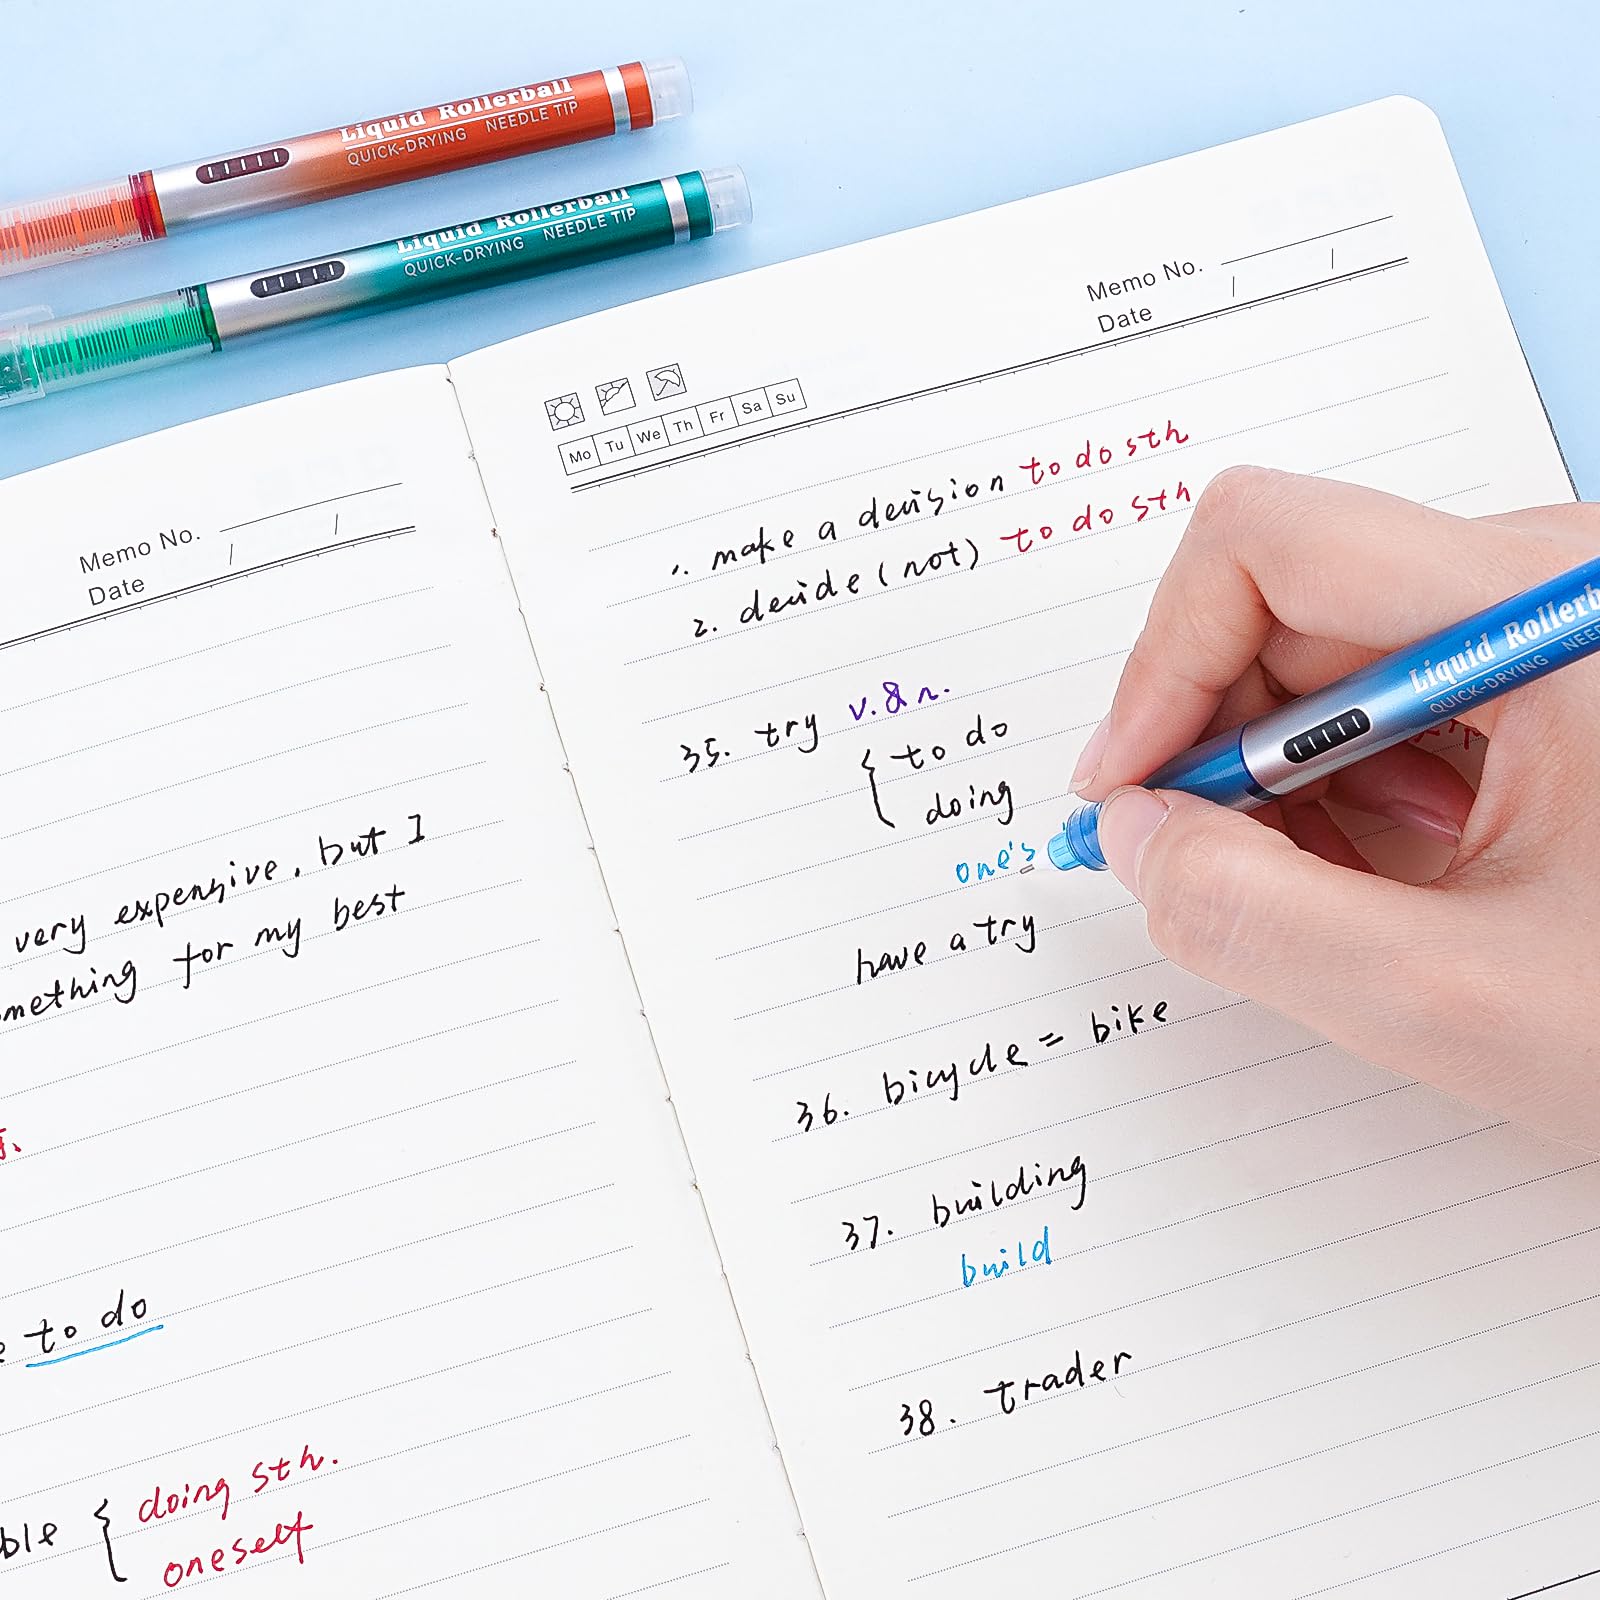 Liquid Rollerball
QUICK-DRYING NEEDLE TIP
Liquid Rollerball
QUICK-DRYING NEEDLE TIP
Memo No.
Date / /
very expensive, but I
mething for my best
to do
ble { doing sth.
oneself
Memo No.
Date / /
Mo Tu We Th Fr Sa Su
1. make a decision to do sth
2. decide (not) to do sth
35. try v.&n.
{ to do
doing
one's
have a try
36. bicycle = bike
37. building
build
38. trader
Liquid Rollerb
QUICK-DRYING NEED